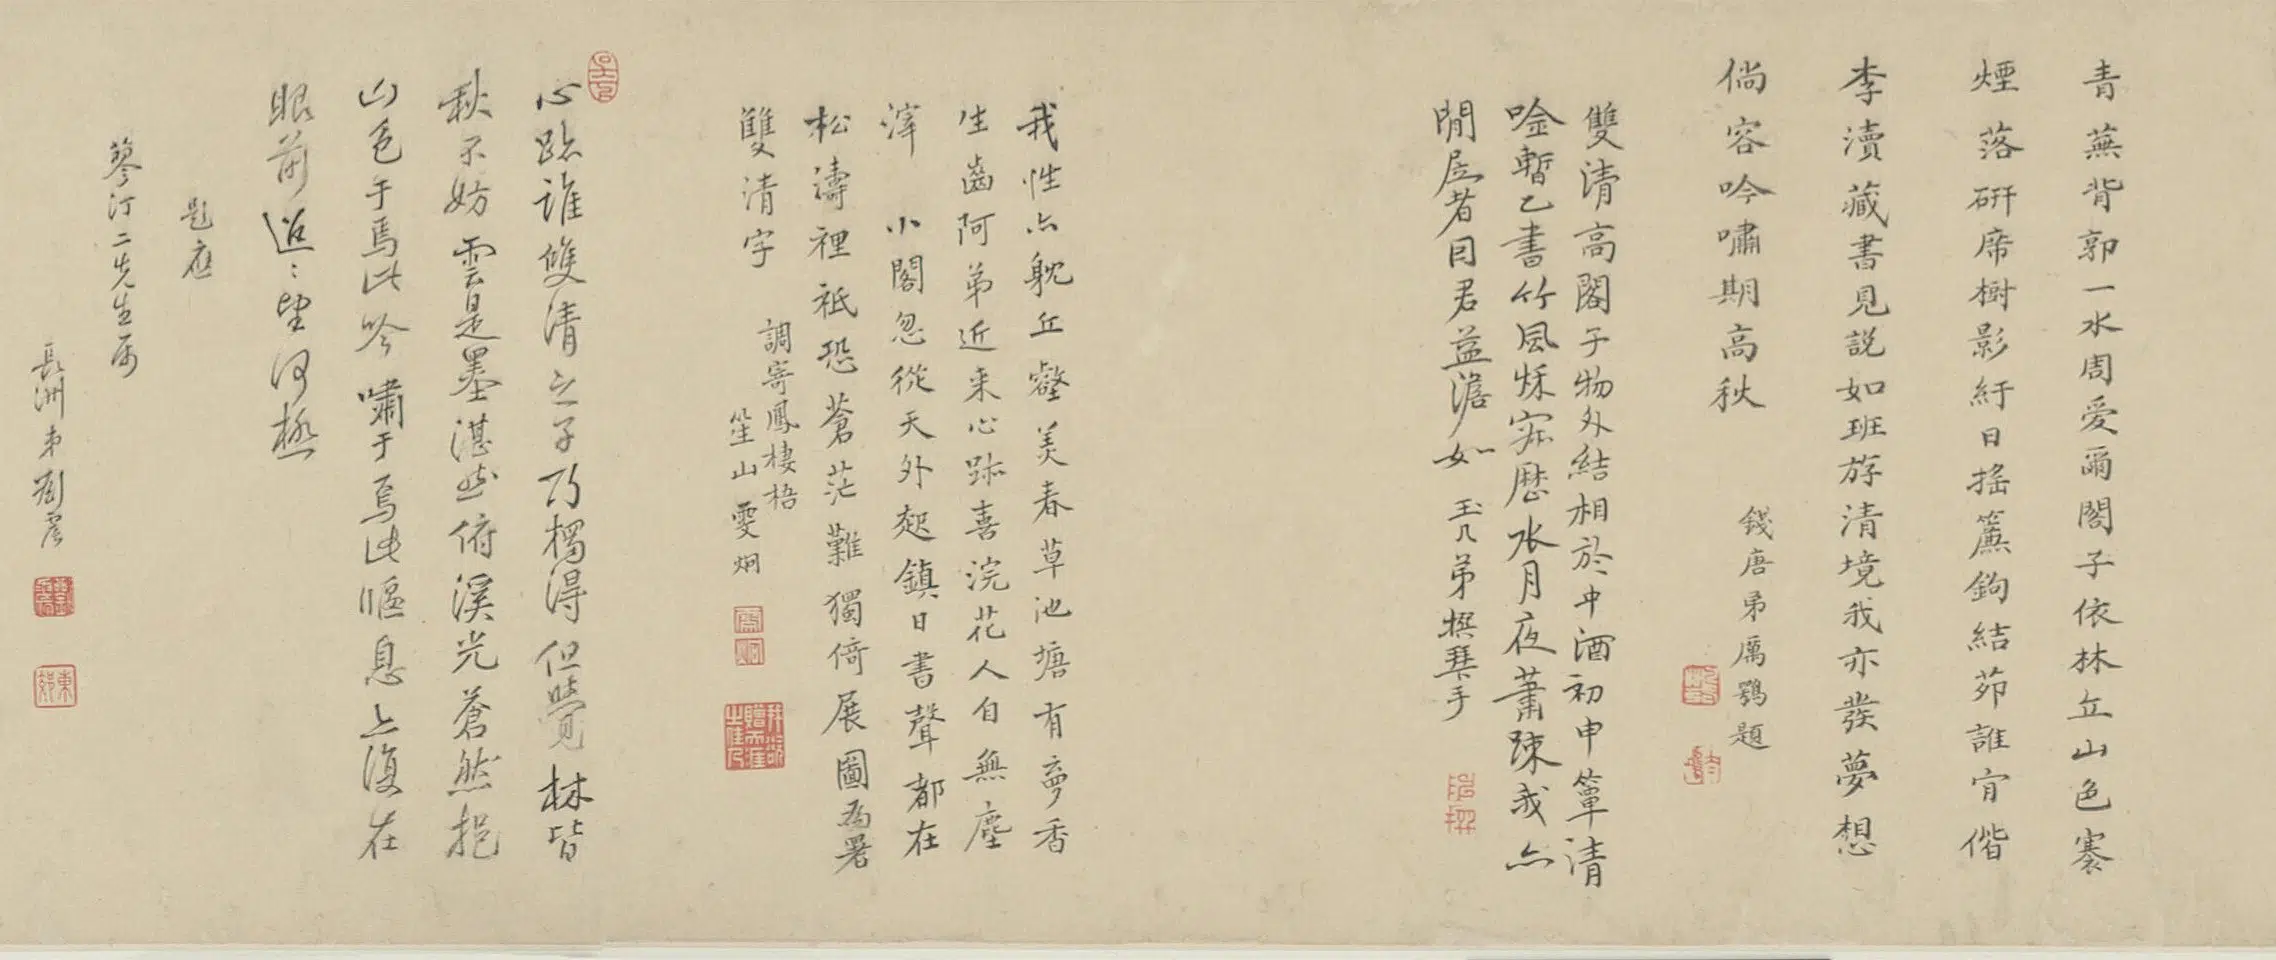 青蕪背郭一水周愛爾閣子依林丘山色褰
煙落研席樹影紆日搖簾鉤結茆誰肎偕
李瀆藏書見説如班游清境我亦發夢想
倘容吟嘯期高秋
錢唐弟厲鶚題
雙清高閣子物外結相於中酒初申簟清
唫暫乙書竹風秌寂歷水月夜蕭疎我亦
閒居者目君益澹如
玉几弟撰琹手
我性亦躭丘壑美春草池塘有夢香
生齒阿弟近来心跡喜浣花人自無塵
滓 小閣忽從天外起鎮日書聲都在
松濤裡衹恐蒼茫難獨倚展圖為署
雙清字
調寄鳳棲梧
笙山雯炯
心跡誰雙清之子乃獨得但覺林皆
秋不妨雲是墨湛此俯溪光蒼然挹
山色于焉此吟嘯于焉此偃息亦復在
眼前迢〻望何極
題應
蓼汀二先生屬
長洲弟劉